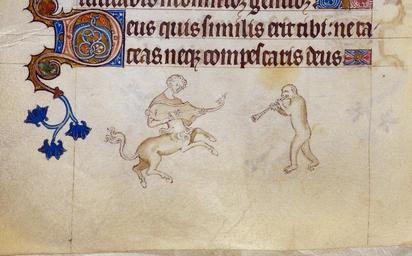 eus quis similis erit tibi: ne ta
ceas neq; compescaris deus